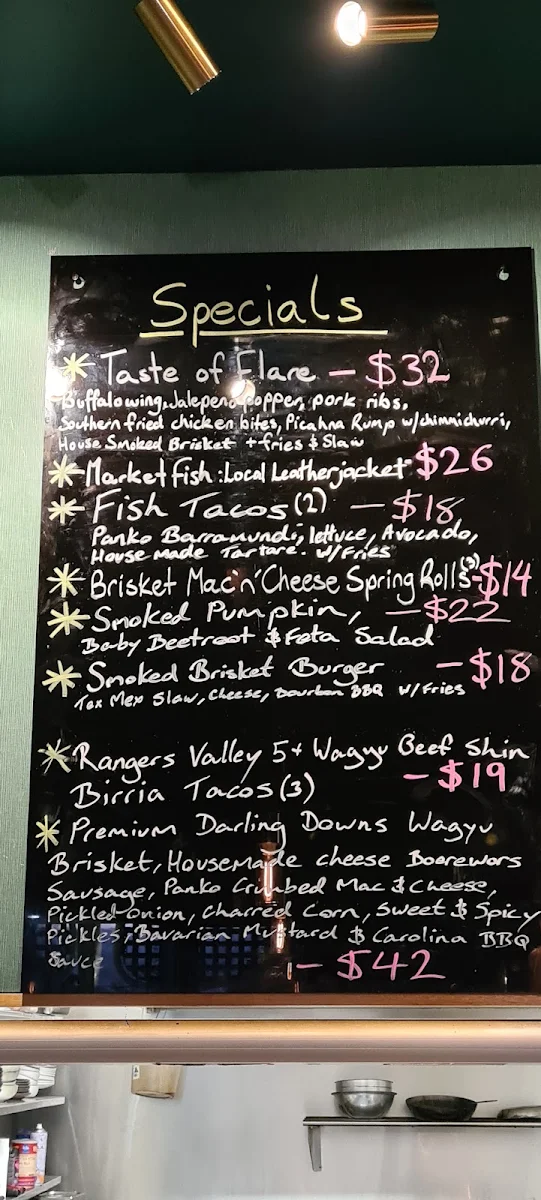 Specials
* Taste of Flare - $32
Buffalo wing, Jalepeno popper, pork ribs,
Southern fried chicken bites, Picahna Rump w/chimmichurri,
House Smoked Brisket + fries & Slaw
* Market fish: Local Leatherjacket $26
* Fish Tacos (2) - $18
Panko Barramundi, lettuce, Avocado,
House made Tartare. w/Fries
* Brisket Mac'n'Cheese Spring Rolls (3) - $14
* Smoked Pumpkin, - $22
Baby Beetroot & Feta Salad
* Smoked Brisket Burger - $18
Tex Mex Slaw, Cheese, Bourbon BBQ w/Fries
* Rangers Valley 5+ Wagyu Beef Shin
Birria Tacos (3) - $19
* Premium Darling Downs Wagyu
Brisket, Housemade cheese Boerewors
Sausage, Panko Crumbed Mac & Cheese,
Pickled Onion, Charred Corn, Sweet & Spicy
Pickles, Bavarian Mustard & Carolina BBQ
Sauce - $42